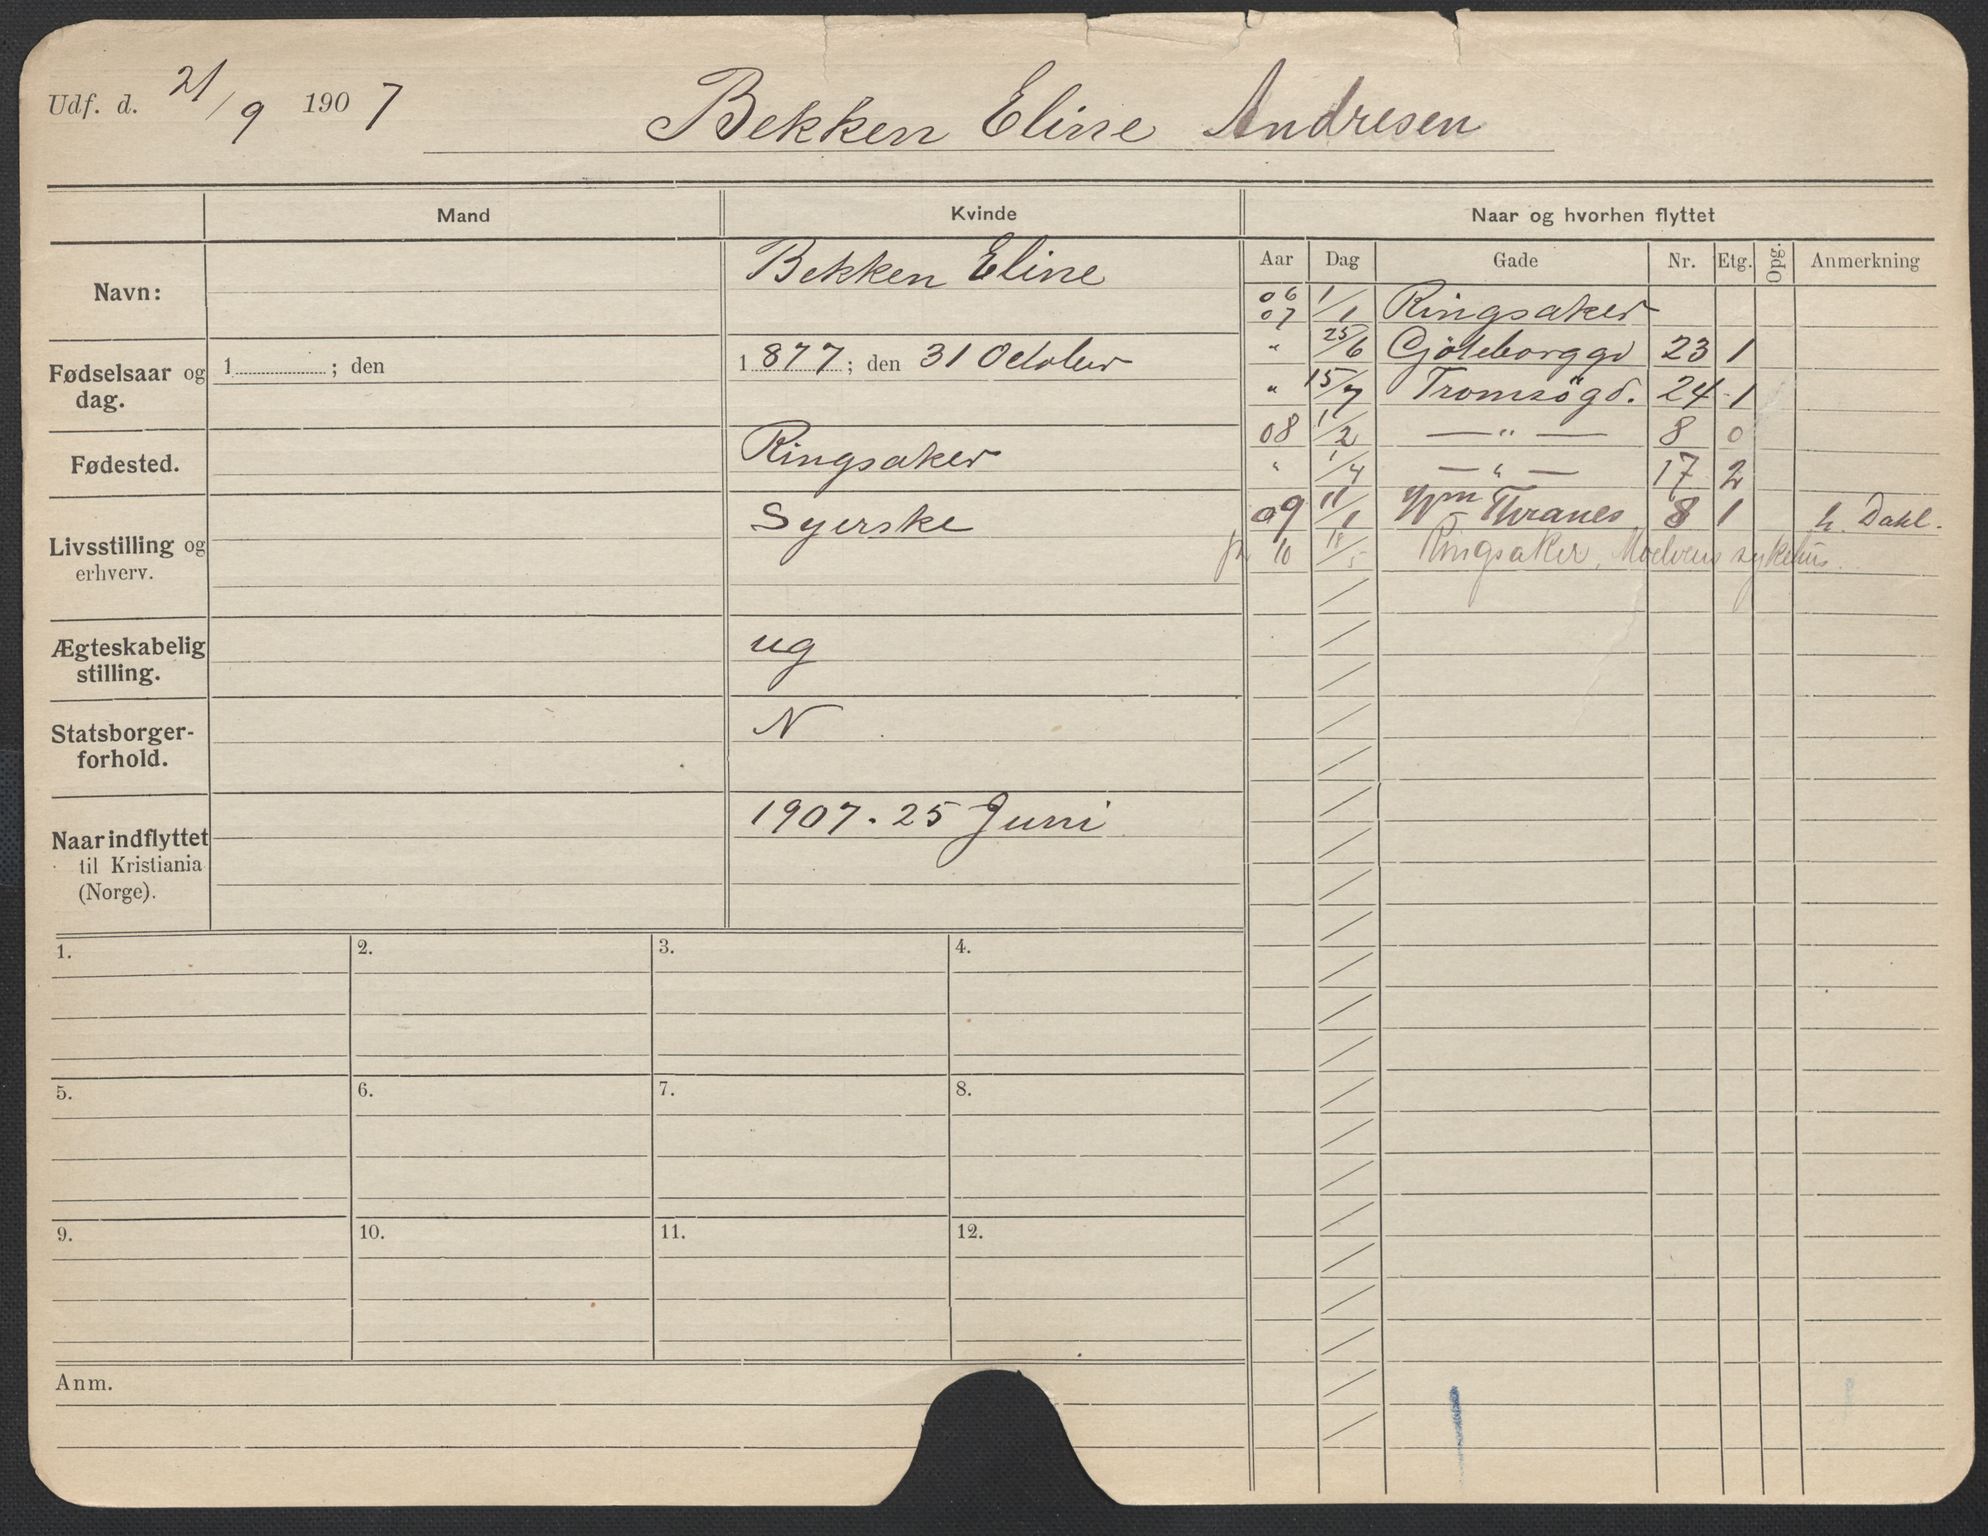 Udf. d. 21/9 1907 Bekken Eline Andresen
Mand Kvinde Naar og hvorhen flyttet
Aar Dag Gade Nr. Etg. Opg. Anmerkning
Navn: Bekken Eline
Fødselsaar og dag. 1 ; den 1877; den 31 October
Fødested. Ringsaker
Livsstilling og erhverv. Syerske
Ægteskabelig stilling. ug
Statsborgerforhold. N
Naar indflyttet til Kristiania (Norge). 1907. 25 Juni
06 07 1/1 Ringsaker
" 25/6 Gøteborggd 23 1
" 15/7 Tromsøgd. 24 1
08 1/2 — " — 8 0
" 1/4 — " — 17 2
09 11/1 Wm Thranes 8 1 h. Dahl.
10 18/5 Ringsaker, Moelvens sykehus.
1. 2. 3. 4.
5. 6. 7. 8.
9. 10. 11. 12.
Anm.